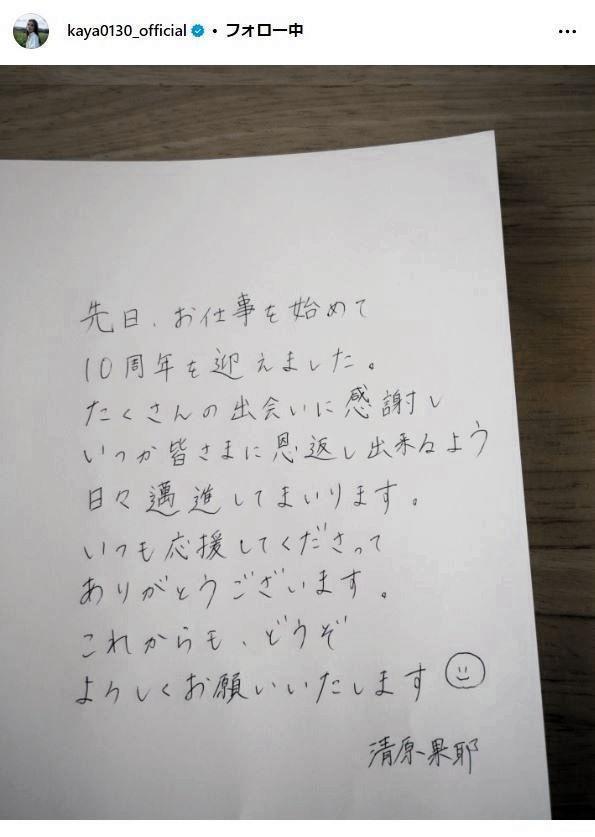 kaya0130_official • フォロー中
先日、お仕事を始めて
10周年を迎えました。
たくさんの出会いに感謝し
いつか皆さまに恩返し出来るよう
日々邁進してまいります。
いつも応援してくださって
ありがとうございます。
これからも、どうぞ
よろしくお願いいたします
清原果耶